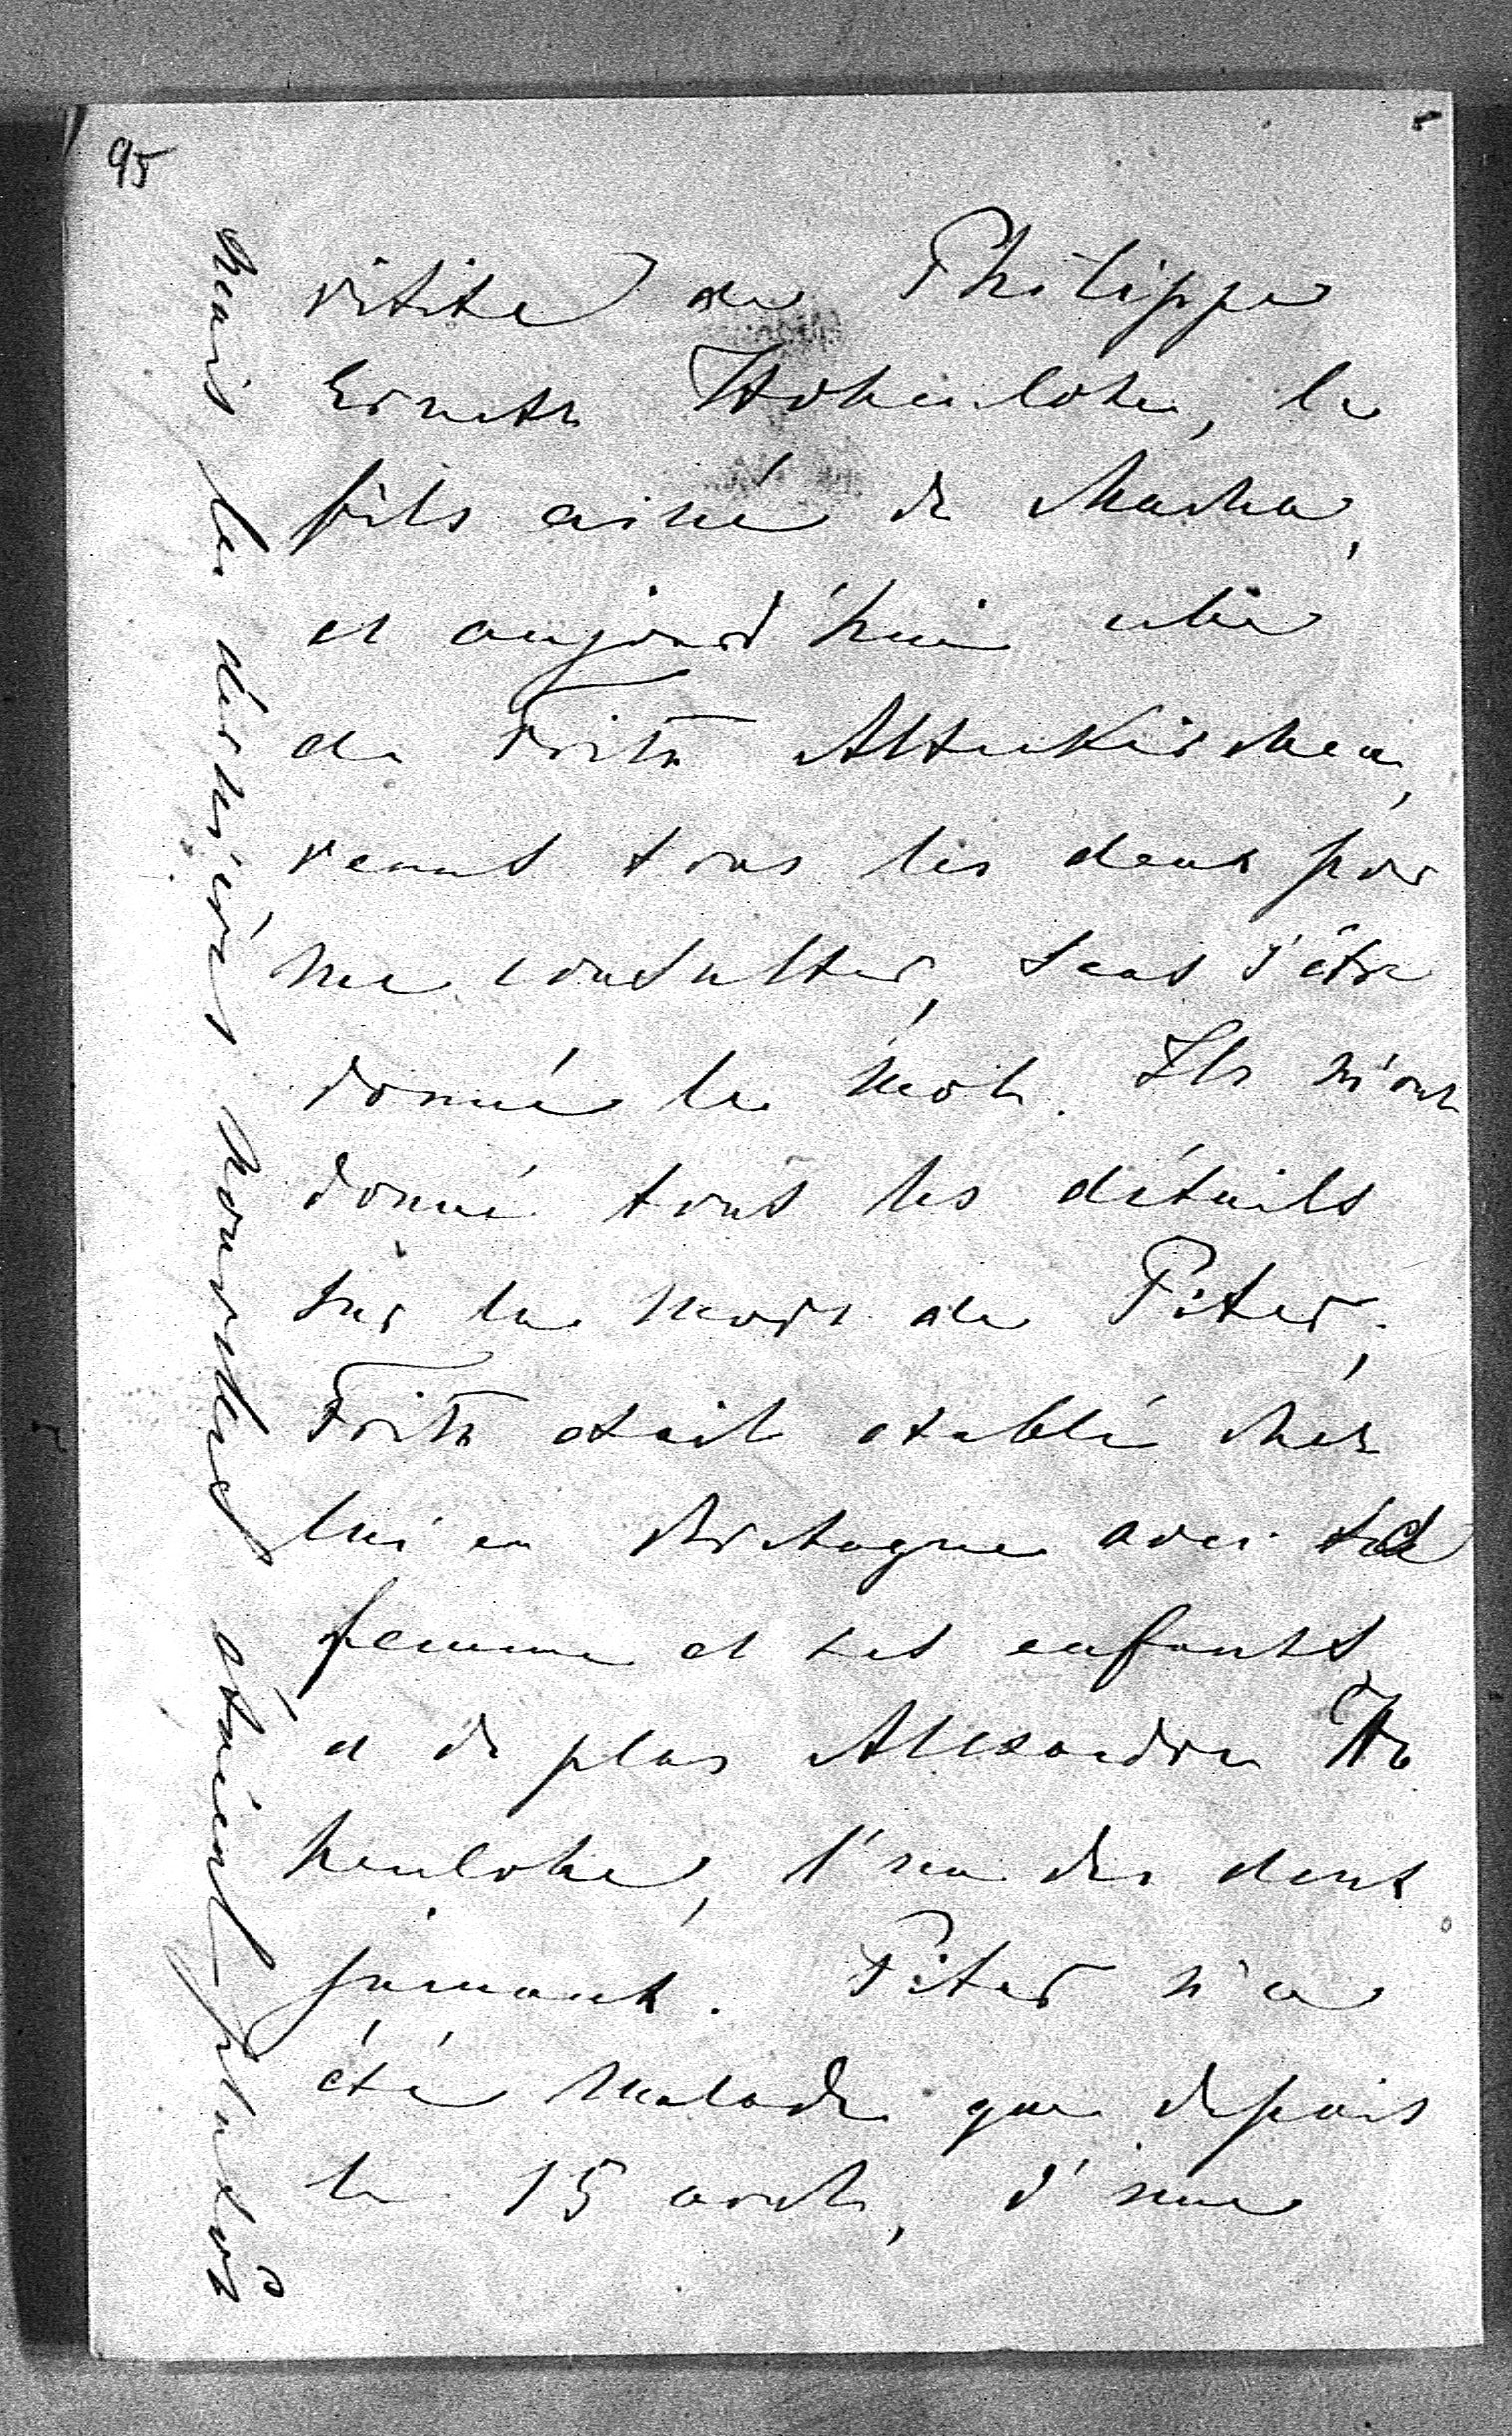 95
visite de Philippe
Ernst Hohenlohe, le
fils ainé de Macha,
et aujourd'hui celle
de Fritz Altenkirchen,
venus tous les deux pour
me consulter, sans s'être
donné le mot. Ils m'ont
donné tous les détails
sur la mort de Peter.
Fritz était établi chez
lui en Bretagne avec sa
femme et ses enfants,
et de plus Alexandre Ho
henlohe, l'un des deux
jumeaux. Peter n'a
été malade que depuis
le 15 août, d'une
mais les dernières nouvelles étaient plutôt